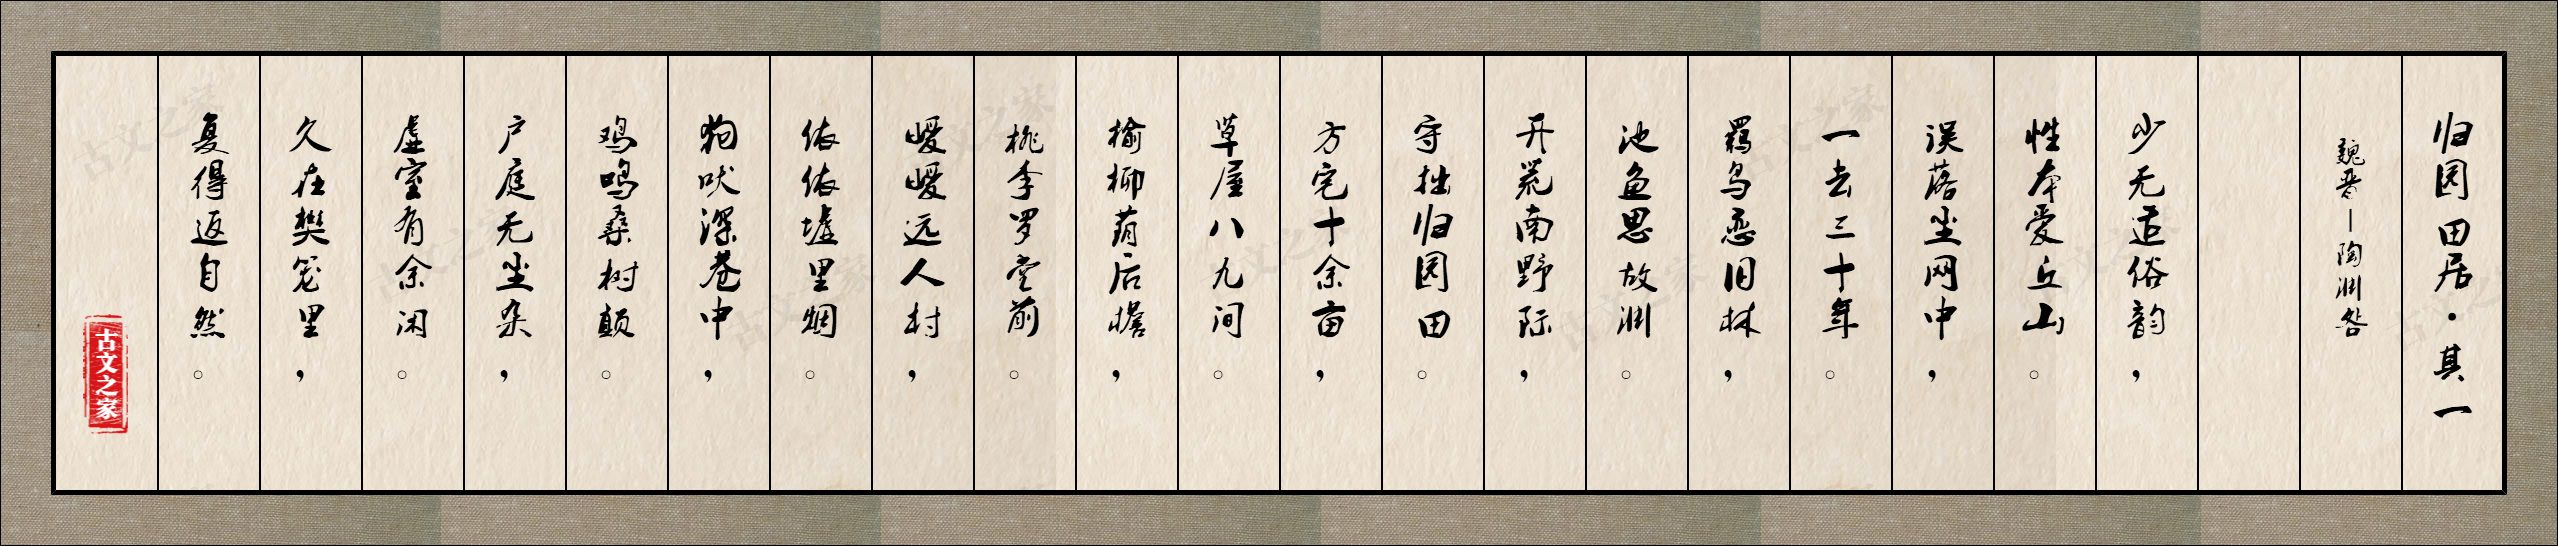 归园田居·其一
魏晋－陶渊明
少无适俗韵，
性本爱丘山。
误落尘网中，
一去三十年。
羁鸟恋旧林，
池鱼思故渊。
开荒南野际，
守拙归园田。
方宅十余亩，
草屋八九间。
榆柳荫后檐，
桃李罗堂前。
暧暧远人村，
依依墟里烟。
狗吠深巷中，
鸡鸣桑树颠。
户庭无尘杂，
虚室有余闲。
久在樊笼里，
复得返自然。
古文之家